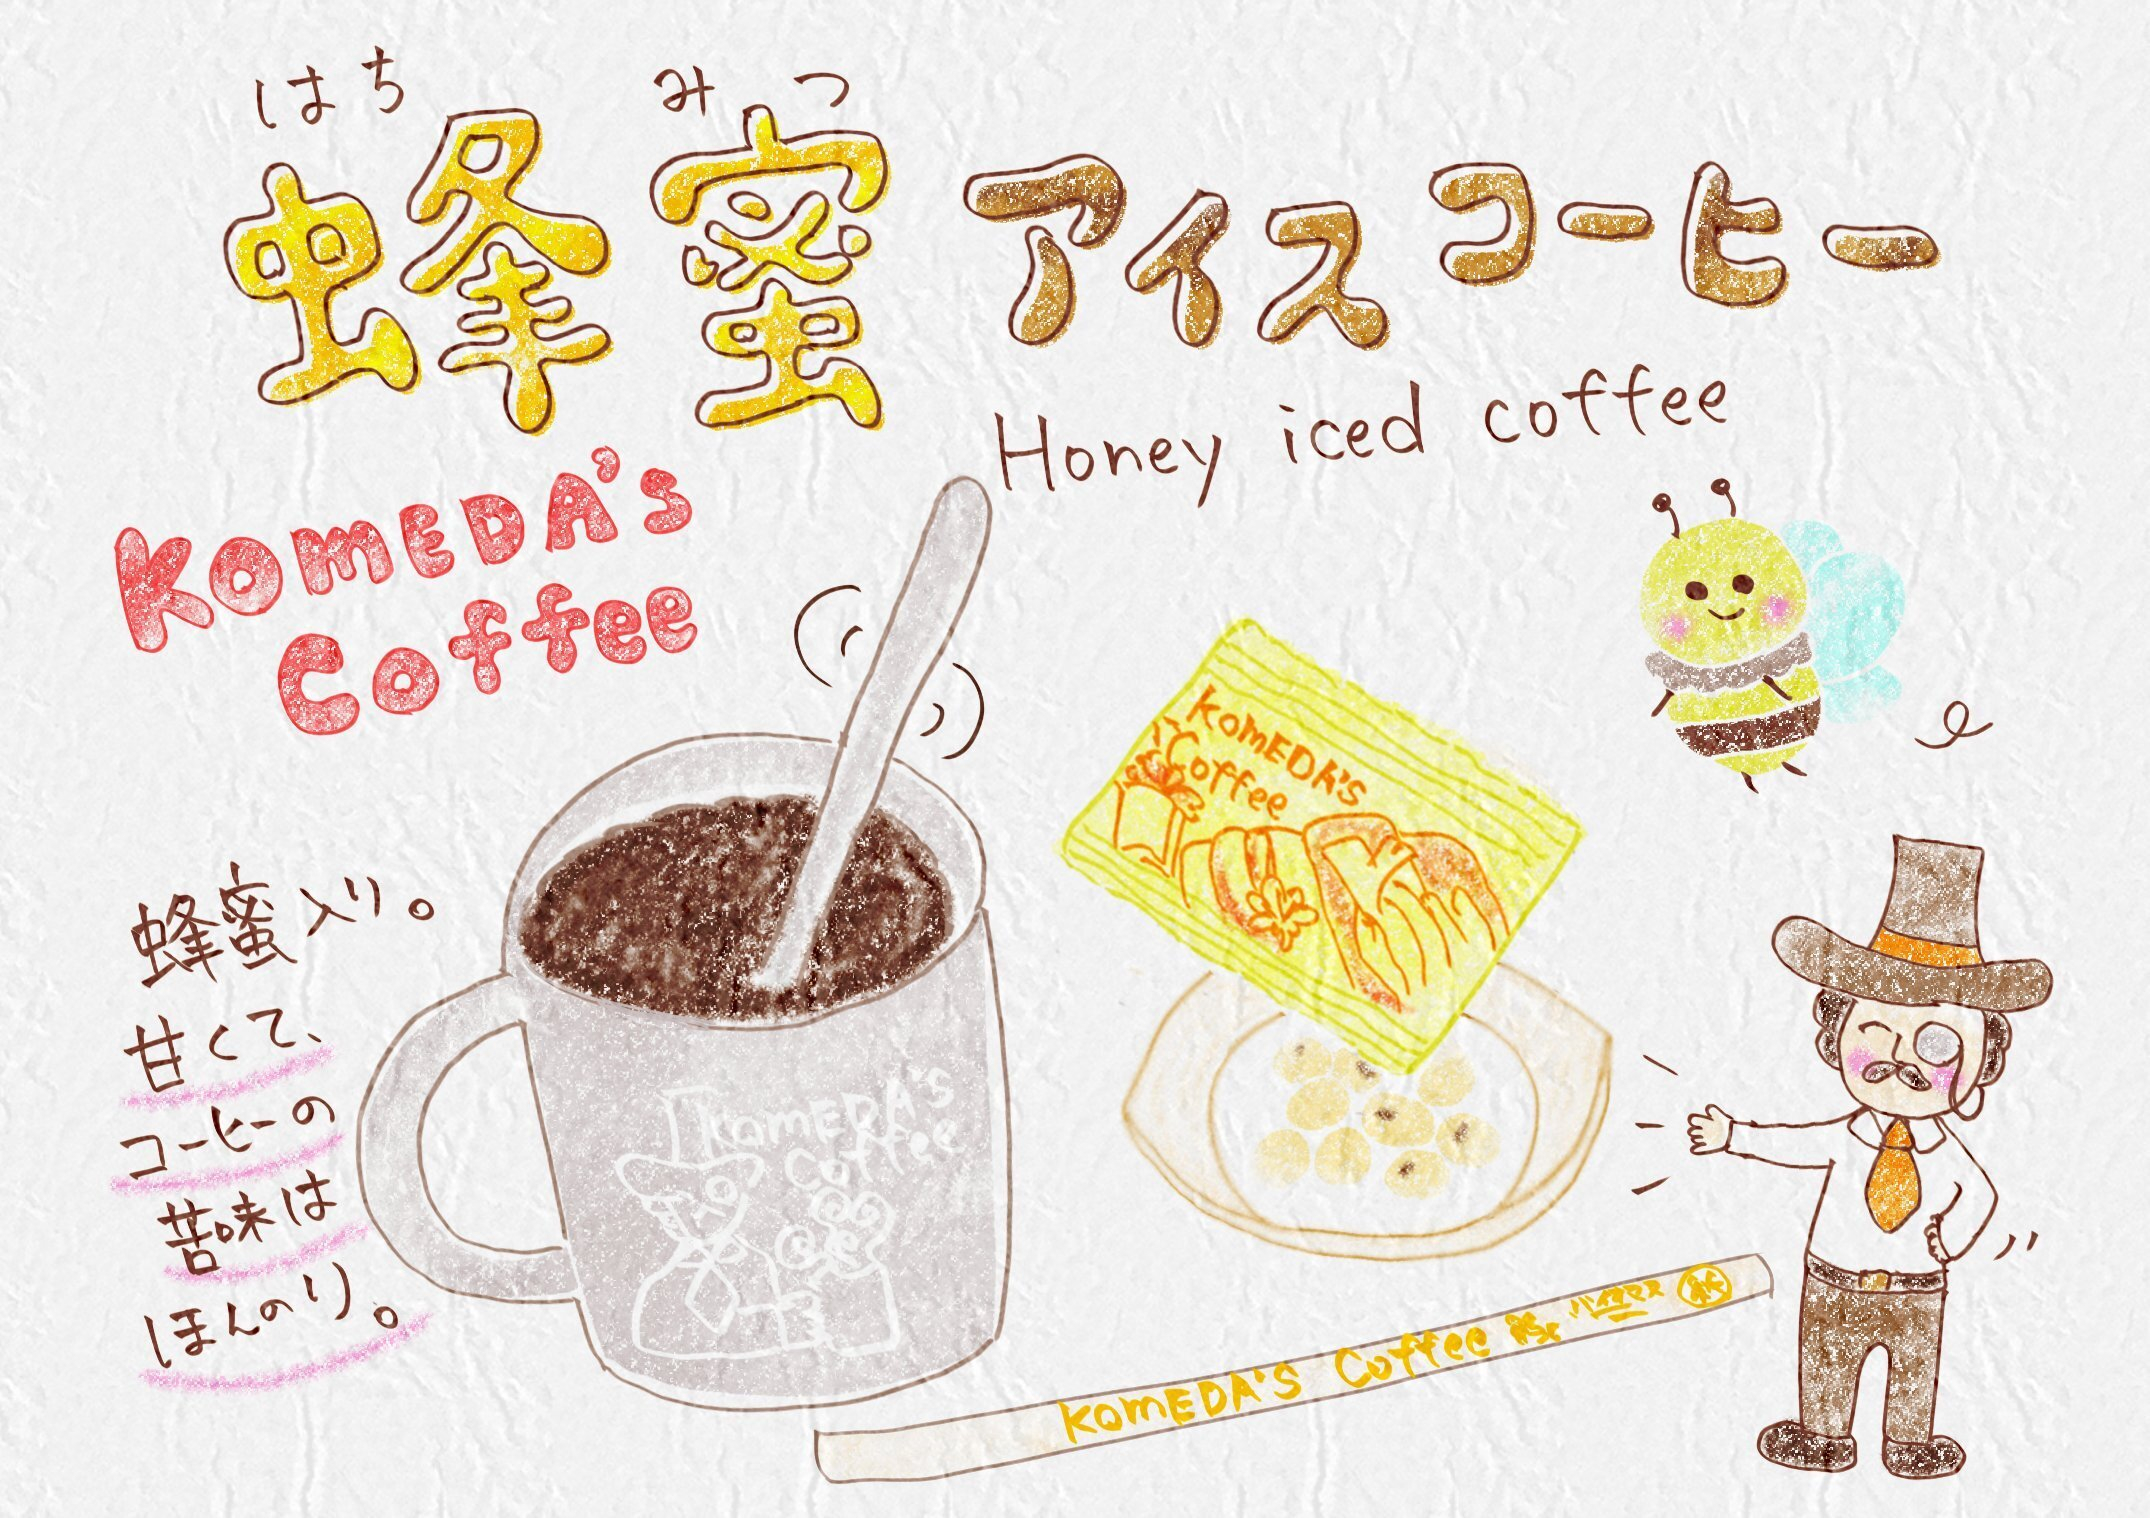 はち みつ
蜂蜜アイスコーヒー
Honey iced coffee
KOMEDA'S
Coffee
KOMEDA'S
Coffee
蜂蜜入り。
甘くて、
コーヒーの
苦味は
ほんのり。
KOMEDA'S
Coffee
KOMEDA'S Coffee バイオマス